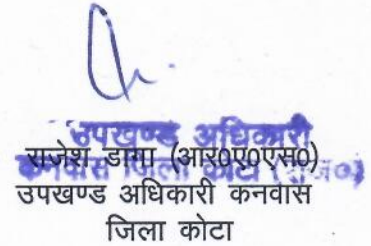 उपखण्ड अधिकारी
कनवास जिला कोटा (राज०)
राजेश डागा (आर०ए०एस०)
उपखण्ड अधिकारी कनवास
जिला कोटा